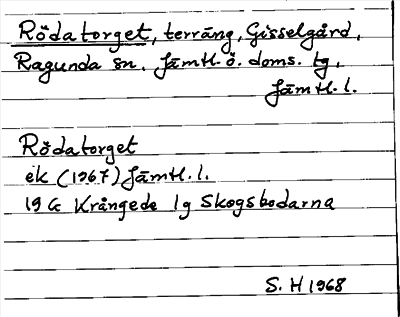 Röda torget, terräng, Gisselgård,
Ragunda sn. Jämtl. ö. doms. tg,
Jämtl. l.
Röda torget
ek (1967) Jämtl. l.
19 G Krångede 1g Skogsbodarna
S. H 1968